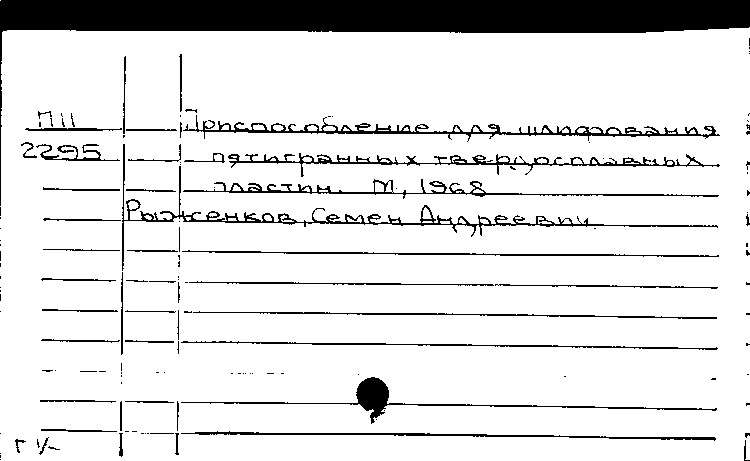 П11 Приспособление для шлифования
2295 пятигранных твердосплавных
пластин. М., 1968
Рыженков, Семен Андреевич